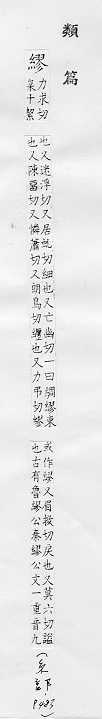 類篇
繆 力求切
枲十絜
也又迷浮切又居虯切也又亡幽切一曰綢繆束
也又憐蕭切又朗鳥切纏也又力弔切繆
或作繆又眉救切戾也又莫六切謚
也古有魯繆公秦繆公文一重音九
(糸部·P483)